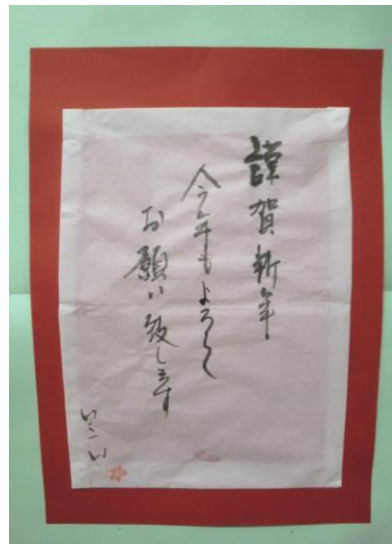 謹賀新年
今年もよろしく
お願い致します